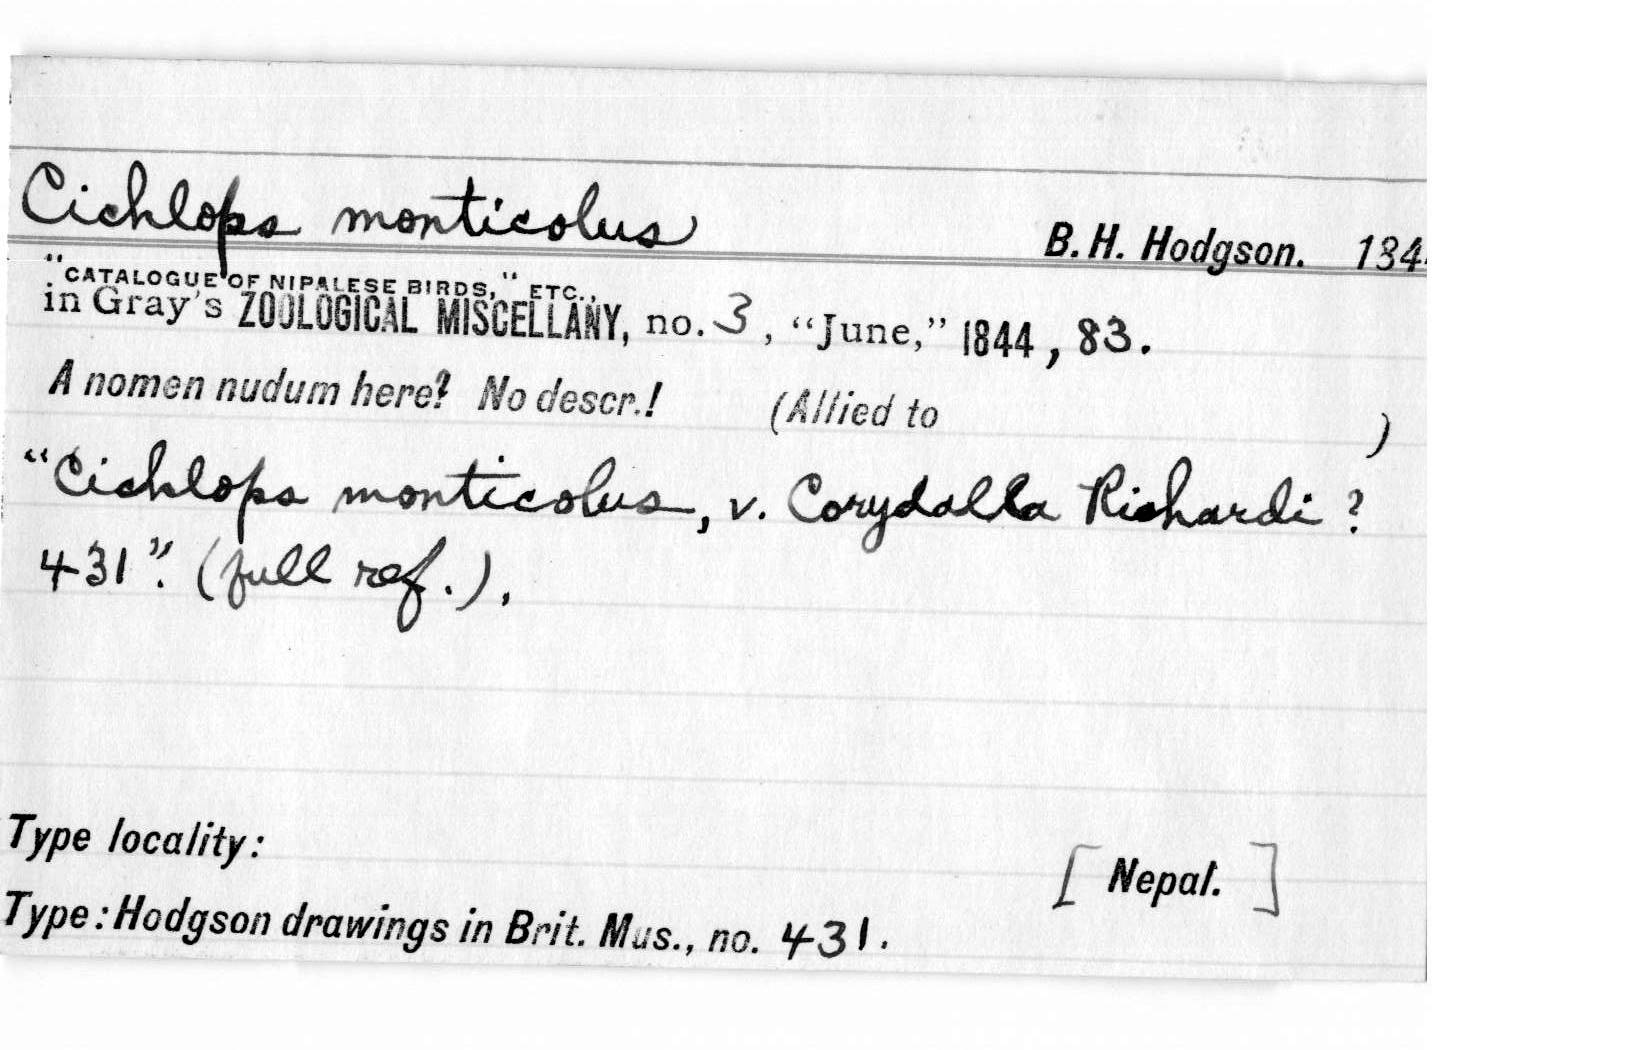 Cichlops monticolus B. H. Hodgson. 184
"CATALOGUE OF NIPALESE BIRDS," ETC.,
in Gray's ZOOLOGICAL MISCELLANY, no. 3, "June," 1844, 83.
A nomen nudum here? No descr.! (Allied to )
"Cichlops monticolus, v. Corydalla Richardi ?
431". (full ref.).
Type locality: [Nepal.]
Type: Hodgson drawings in Brit. Mus., no. 431.